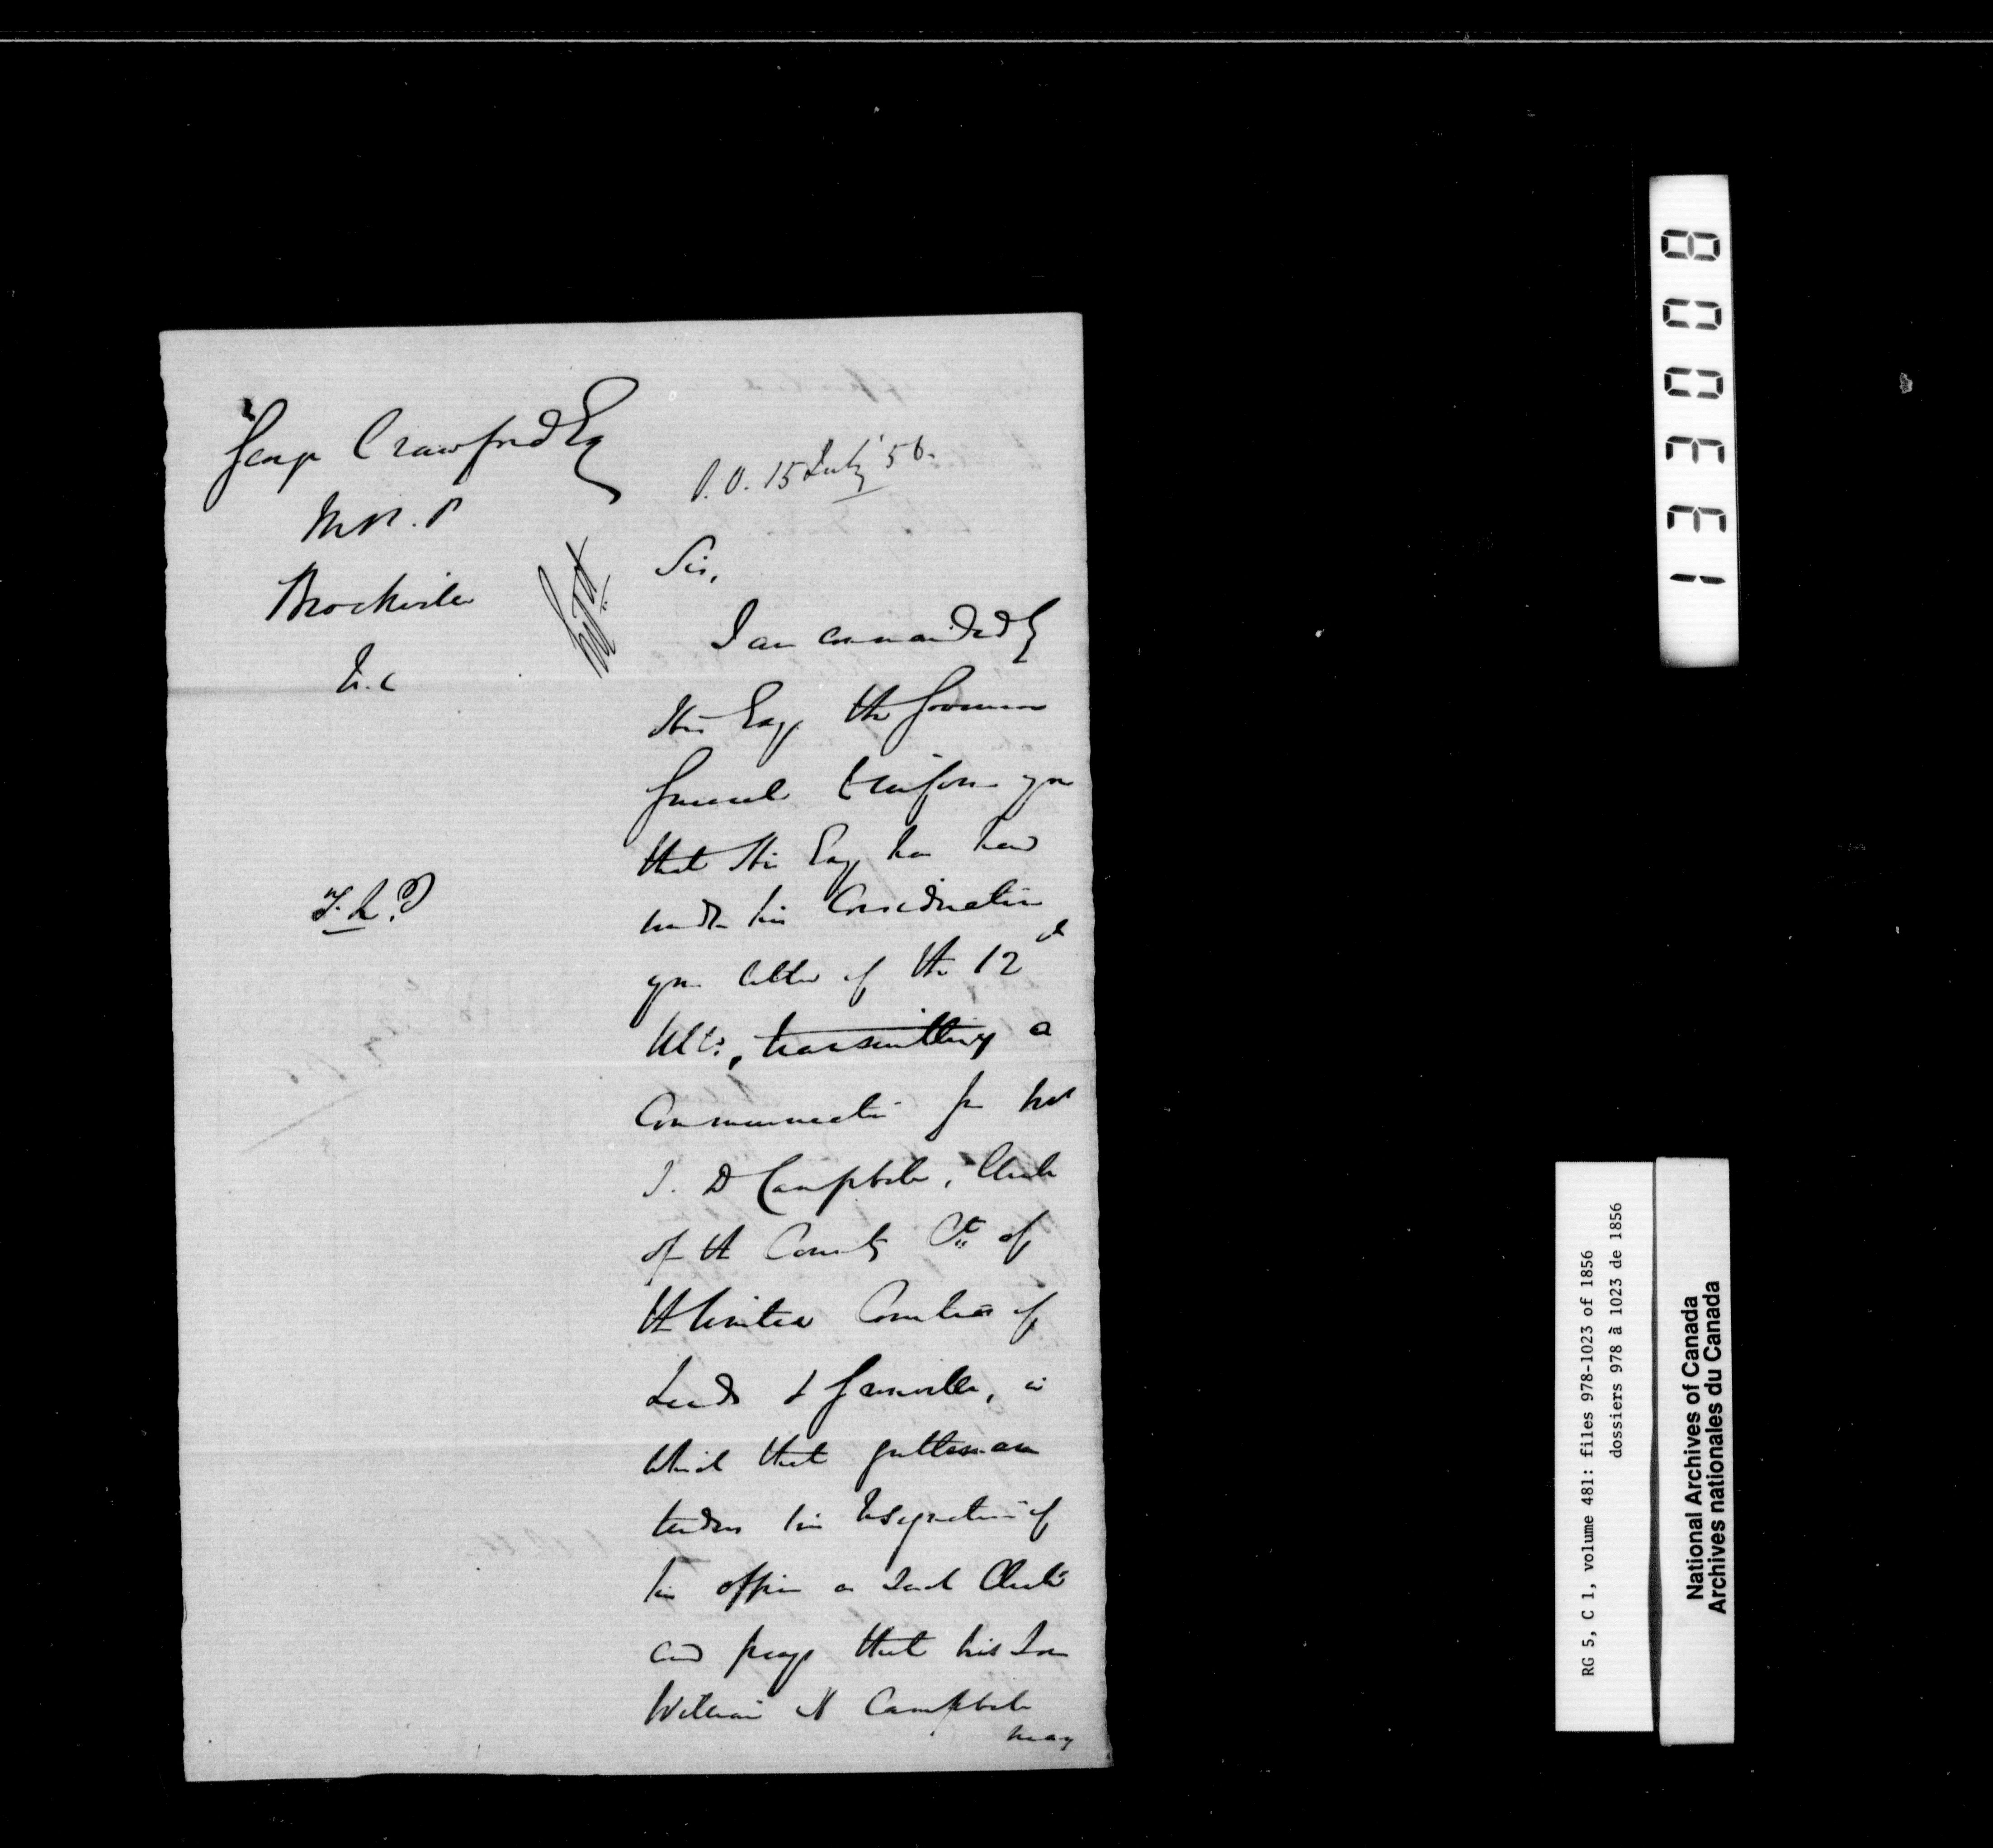 George Crawford Esq
M.P.P
Brockville
U.C
T.L.T
S.O. 15 July '56.
Sir,
I am commanded by
His Excy the Governor
General to inform you
that His Excy has had
under his Consideration
your letter of the 12th
Ulto, transmitting a
Communication from Mr
J. D Campbell, Clerk
of the County Ct of
the United Counties of
Leeds & Grenville, in
which that gentleman
tenders his resignation of
his office as such Clerk
and prays that his Son
William H Campbell
may
130081
RG 5, C 1, volume 481: files 978-1023 of 1856
dossiers 978 à 1023 de 1856
National Archives of Canada
Archives nationales du Canada